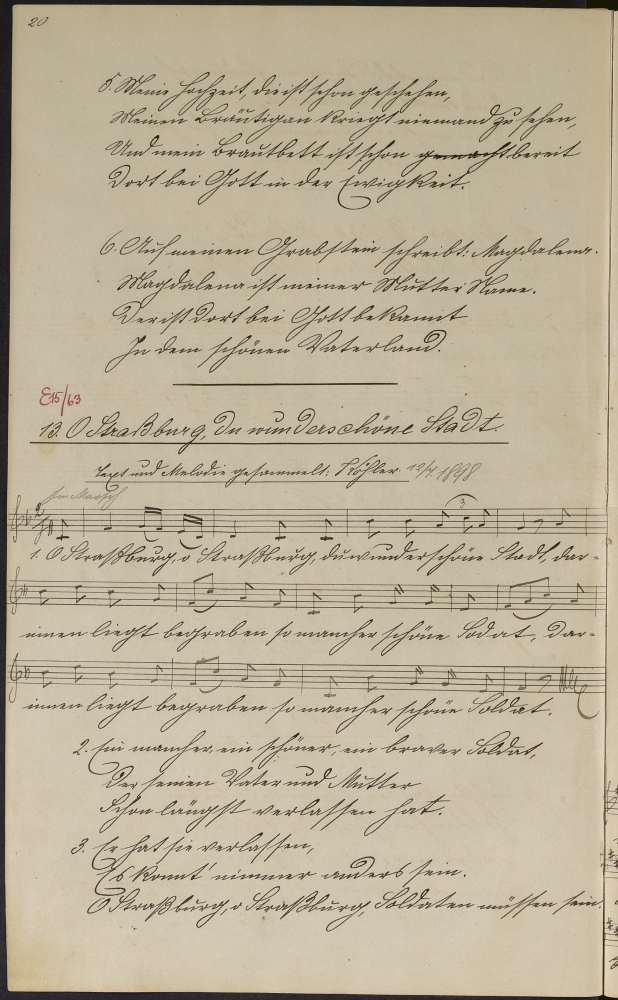 20
5. Meine Hochzeit, die ist schon geschehen,
Meinen Bräutigan kriegt niemand zu sehen,
Und mein Brautbett ist schon gemacht bereit
Dort bei Gott in der Ewigkeit.
6. Auf meinen Grabstein schreibt: Magdalena.
Magdalena ist meiner Mutter Name.
Der ist dort bei Gott bekannt
In dem schönen Vaterland.
E15/63
13. O Straßburg, du wunderschöne Stadt.
Text und Melodie gesammelt: Köhler 1898
Im Marsch
3
1. O Straßburg, o Straßburg, du wunderschöne Stadt, dar-
innen liegt begraben so mancher schöne Sodat, Dar-
innen liegt begraben so mancher schöne Soldat.
2. Ein mancher, ein schöner, ein braver Soldat,
Der seinen Vater und Mutter
Schon längst verlassen hat.
3. Er hat sie verlassen,
Es konnt' nimmer anders sein.
O Straßburg, o Straßburg, Soldaten müssen sein.